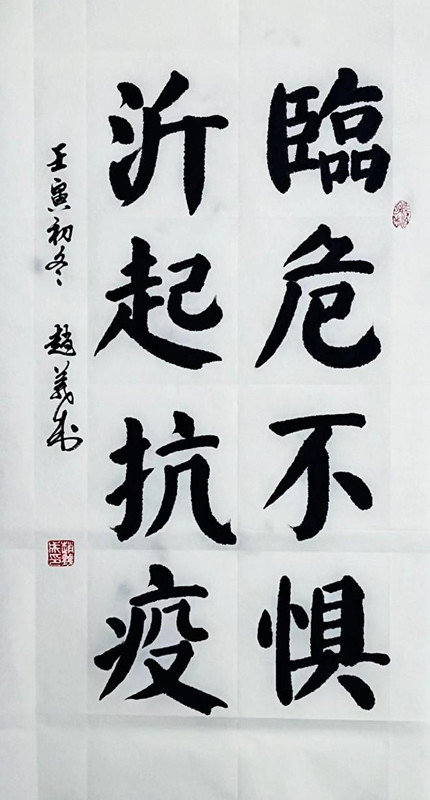 臨危不惧
沂起抗疫
壬寅初冬 趙義成